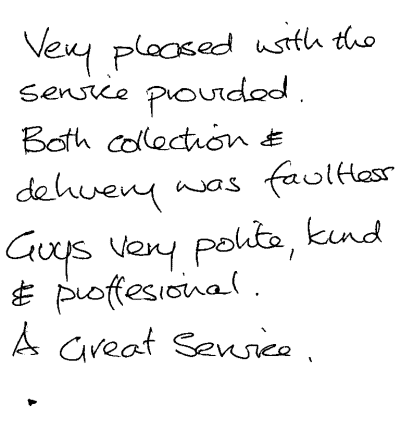 Very pleased with the
service provided.
Both collection &
delivery was faultless
Guys very polite, kind
& proffesional.
A Great Service.
.